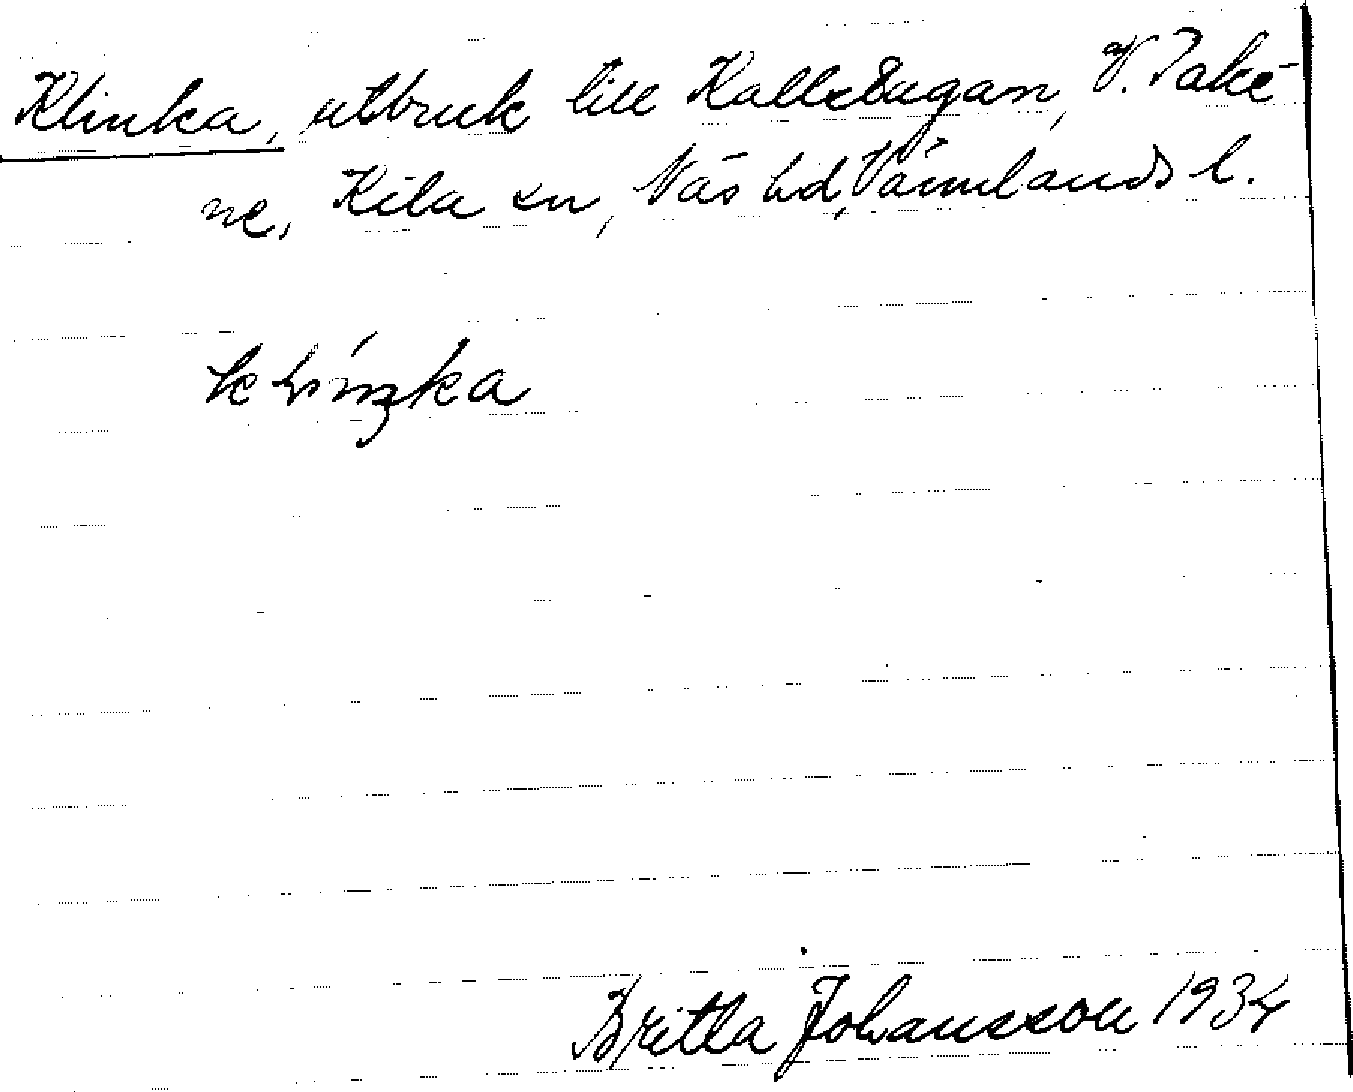 Klinka, utbruk till Kallstugan, V. Take-
ne, Kila sn, Näs hd, Värmlands l.
Britta Johansson 1934